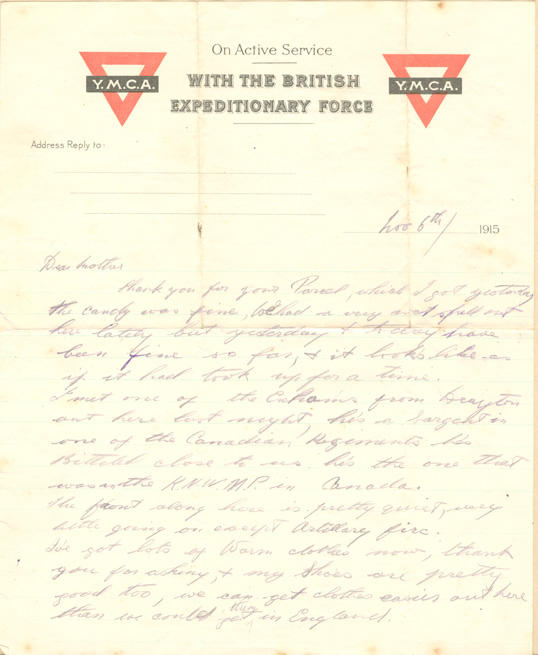 On Active Service
Y.M.C.A.
WITH THE BRITISH
EXPEDITIONARY FORCE
Y.M.C.A.
Address Reply to:
Nov 6th/ 1915
Dear Mother
Thank you for your Parcel, which I got yesterday
the candy was fine, We had a very wet spell out
here lately but yesterday & today have
been fine so far, & it looks like as
if it had took up for a time.
I met one of the from Drayton
out here last night, he's a Sargent in
one of the Canadian Regements he's
Billeted close to us he's the one that
was in the R.N.W.M.P. in Canada.
The front along here is pretty quiet, very
little going on except Artillary fire.
I've got lots of Warm clothes now, thank
you for asking, & my Shoes are pretty
good too, we can get clothes easier out here
than we could get them in England.